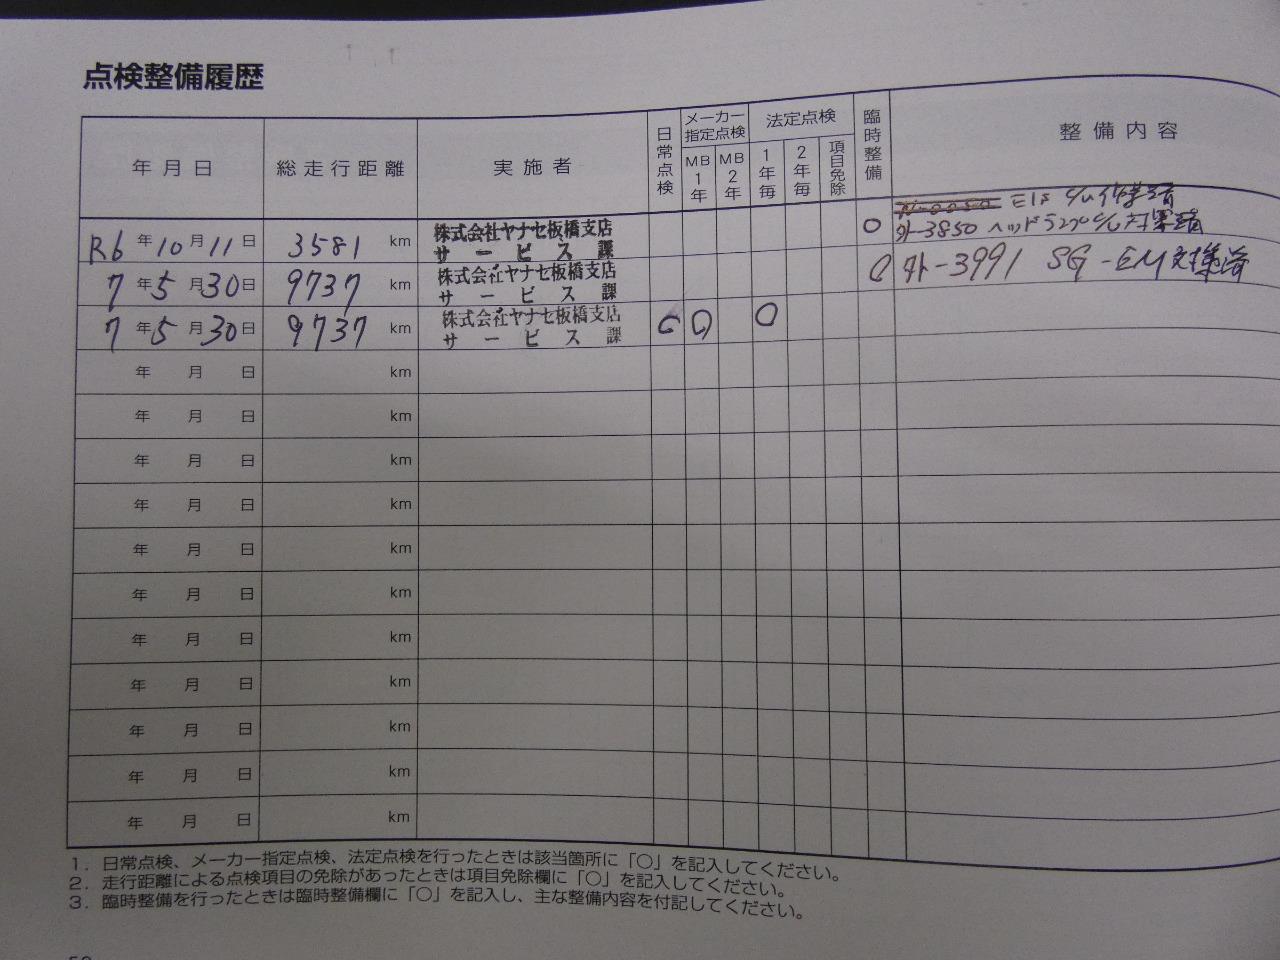 点検整備履歴
年月日 総走行距離 実施者 日常点検 メーカー指定点検 MB1年 MB2年 法定点検 1年毎 2年毎 項目免除 臨時整備 整備内容
E1s
R6年10月11日 3581 km 株式会社ヤナセ板橋支店 ○ 外-3850 ヘッドランプC/U対策済
サービス課
7年5月30日 9737 km 株式会社ヤナセ板橋支店 ○ 外-3991 SG-EM交換済
サービス課
7年5月30日 9737 km 株式会社ヤナセ板橋支店 ○ ○ ○
サービス課
年 月 日 km
年 月 日 km
年 月 日 km
年 月 日 km
年 月 日 km
年 月 日 km
年 月 日 km
年 月 日 km
年 月 日 km
年 月 日 km
年 月 日 km
1. 日常点検、メーカー指定点検、法定点検を行ったときは該当箇所に「○」を記入してください。
2. 走行距離による点検項目の免除があったときは項目免除欄に「○」を記入してください。
3. 臨時整備を行ったときは臨時整備欄に「○」を記入し、主な整備内容を付記してください。